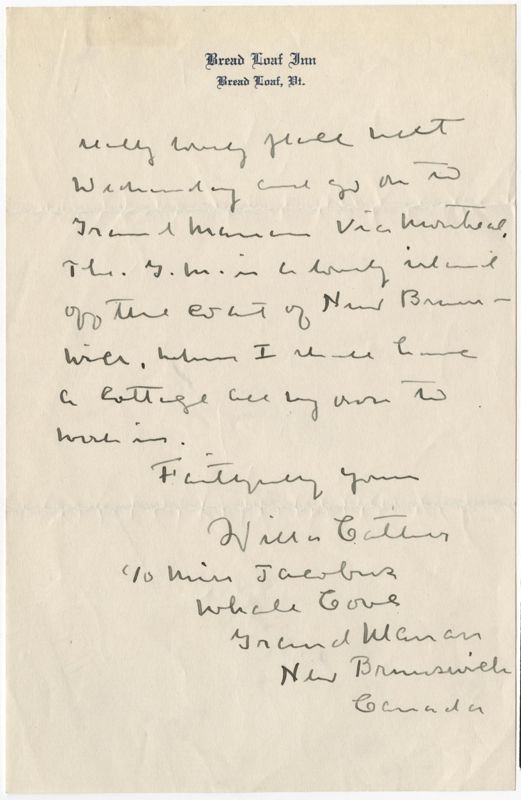 Bread Loaf Inn
Bread Loaf, Vt.
really lovely place next
Wednesday and go on to
Grand Manan Via Montreal.
The. G. M. is a lonely island
off the coast of New Bruns-
wick, where I shall have
a cottage all my own to
work in.
Faithfully yours
Willa Cather
c/o Miss Jacobus
Whale Cove
Grand Manan
New Brunswick
Canada